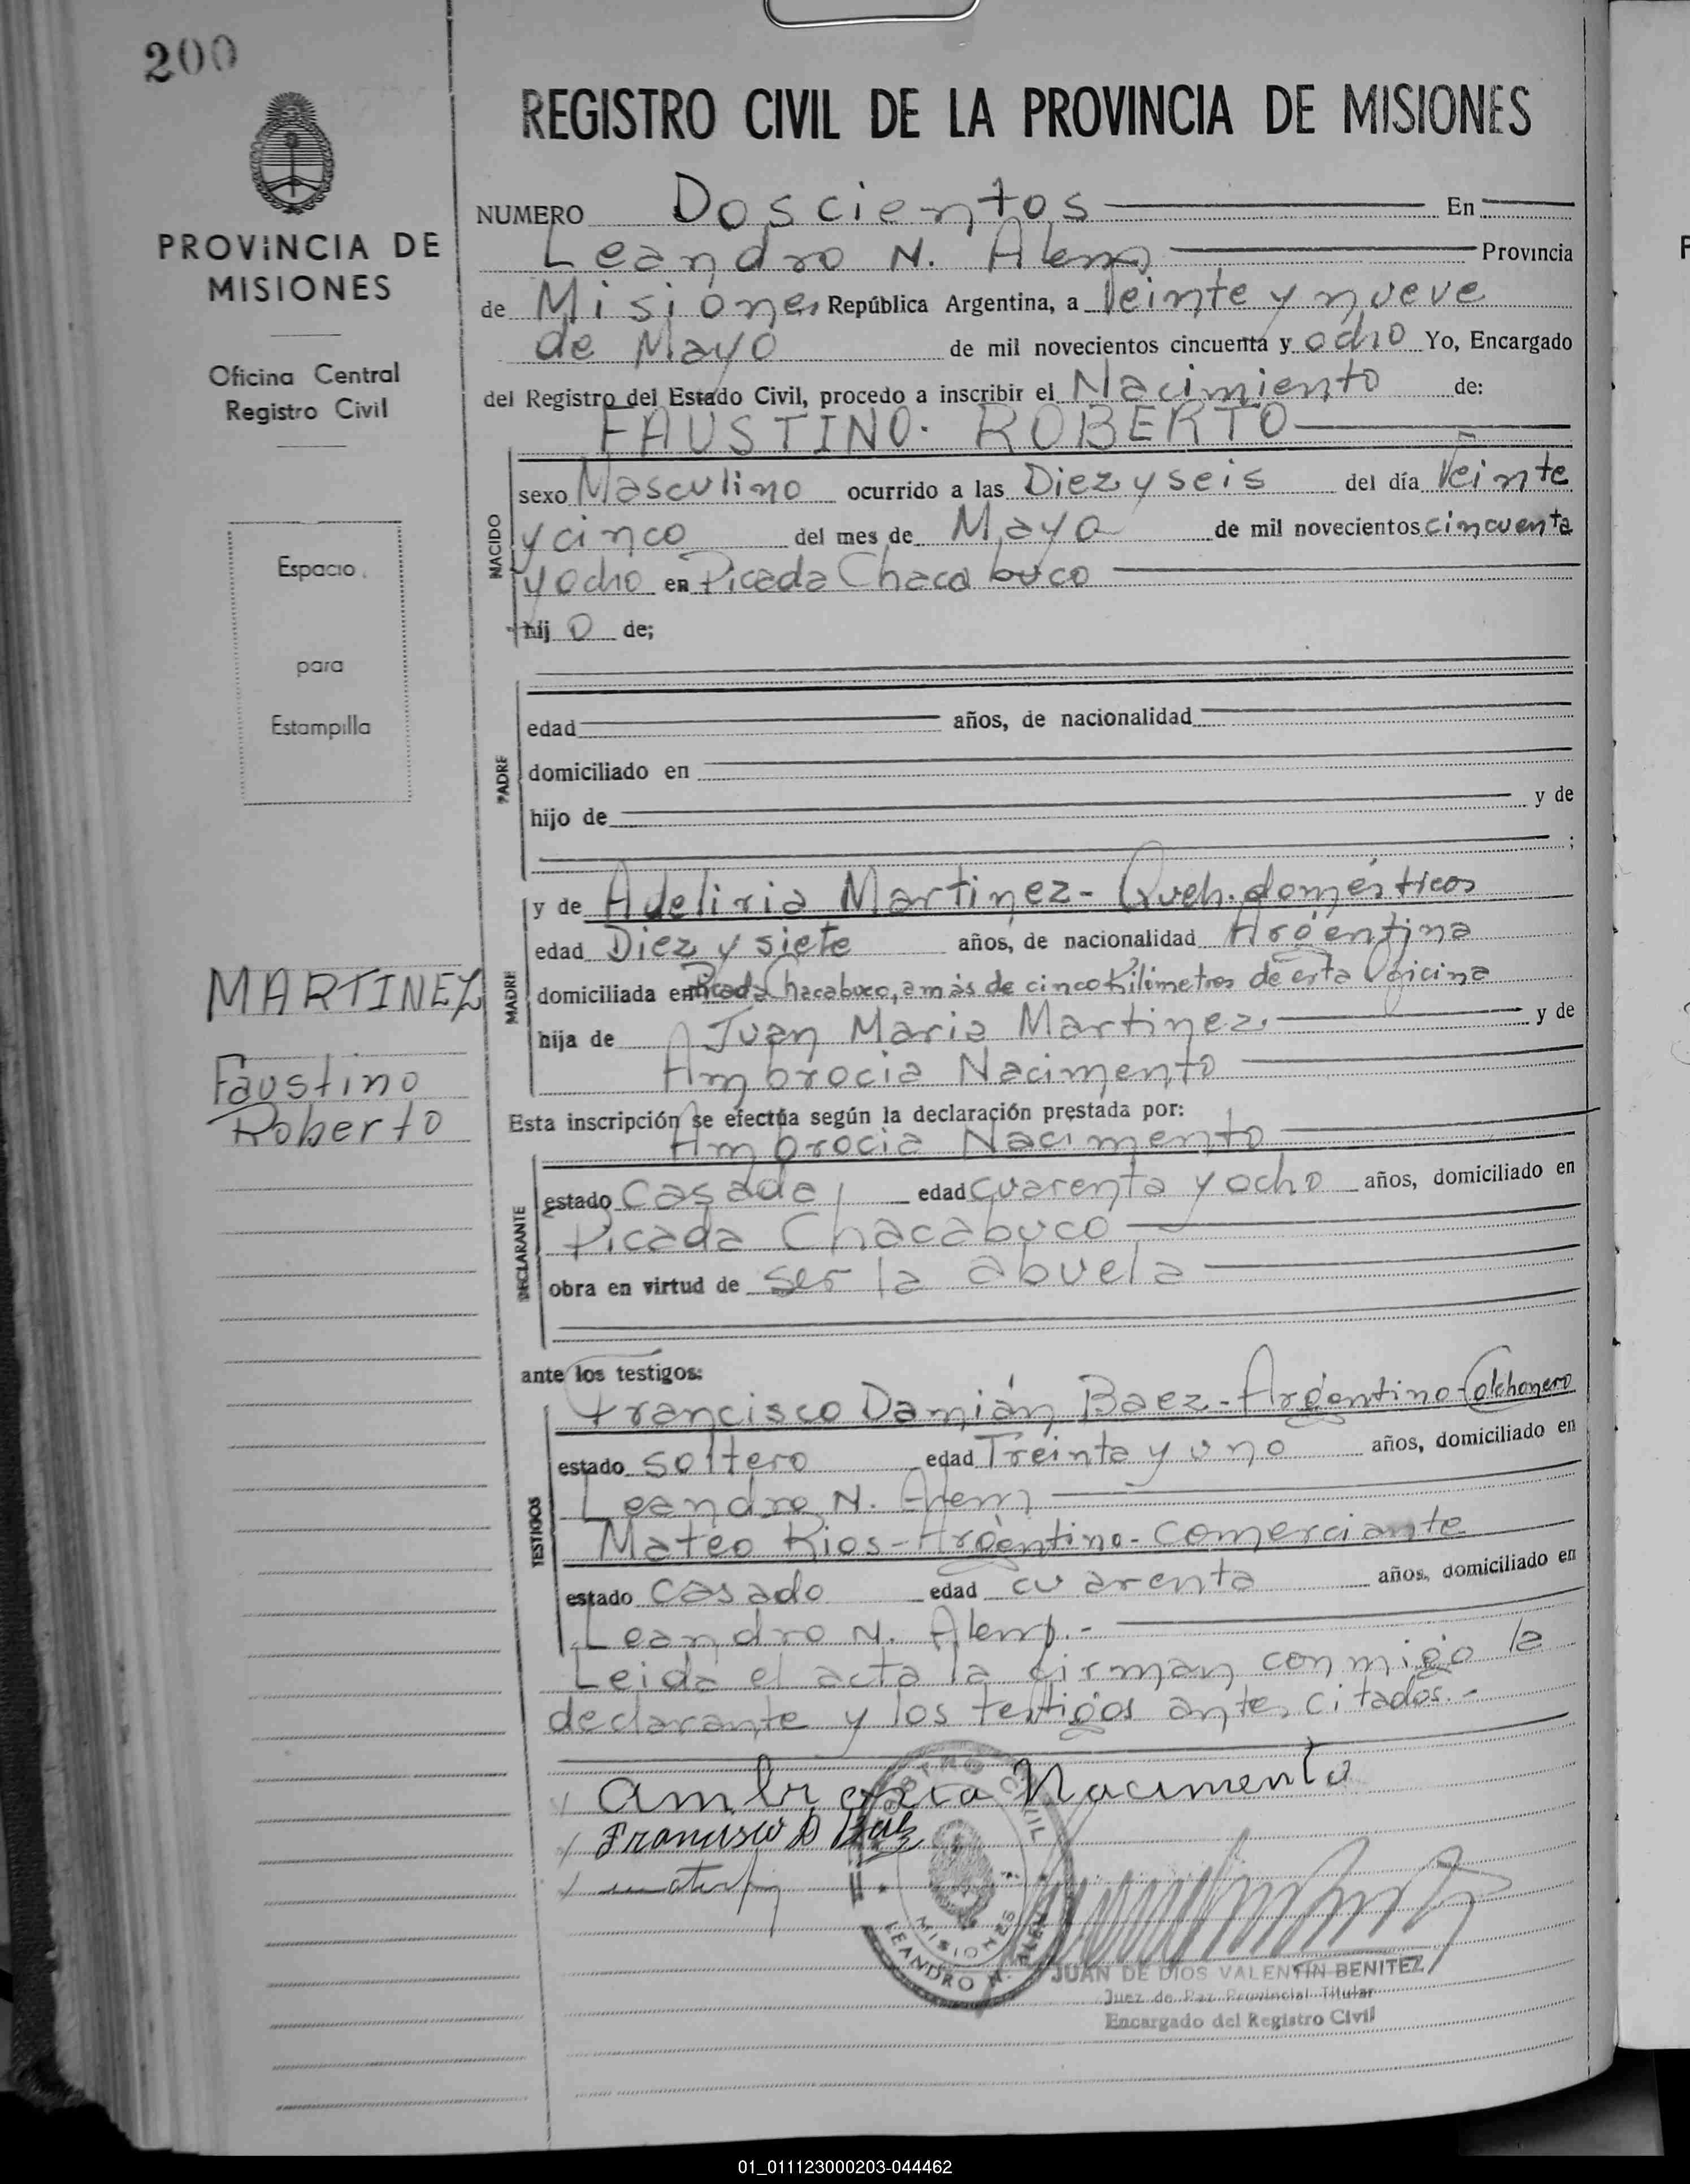 200
PROVINCIA DE
MISIONES
Oficina Central
Registro Civil
Espacio
para
Estampilla
MARTINEZ
Faustino
Roberto
REGISTRO CIVIL DE LA PROVINCIA DE MISIONES
NUMERO Doscientos En
Leandro N. Alem Provincia
de Misiones República Argentina, a Veinte y nueve
de Mayo de mil novecientos cincuenta y ocho Yo, Encargado
del Registro del Estado Civil, procedo a inscribir el Nacimiento de:
FAUSTINO. ROBERTO
NACIDO
sexo Masculino ocurrido a las Diez y seis del día Veinte
y cinco del mes de Mayo de mil novecientos cincuenta
y ocho en Picada Chacabuco
hij o de;
PADRE
edad años, de nacionalidad
domiciliado en
hijo de y de
;
MADRE
y de Adeliria Martinez - Queh. domésticos
edad Diez y siete años, de nacionalidad Argentina
domiciliada en Picada Chacabuco, a más de cinco Kilómetros de esta Oficina
hija de Juan Maria Martinez. y de
Ambrocia Nacimento
Esta inscripción se efectúa según la declaración prestada por:
Ambrocia Nacimento
DECLARANTE
estado casada edad cuarenta y ocho años, domiciliado en
Picada Chacabuco
obra en virtud de ser la abuela
ante los testigos:
TESTIGOS
Francisco Damián Baez - Argentino - Colchonero
estado soltero edad Treinta y uno años, domiciliado en
Leandro N. Alem
Mateo Rios - Argentino - Comerciante
estado casado edad cuarenta años, domiciliado en
Leandro N. Alem. -
Leida el acta la firman conmigo la
declarante y los testigos antes citados. -
Ambrosia Nacimento
Francisco D Baez
REGISTRO CIVIL
MISIONES
LEANDRO N. ALEM
JUAN DE DIOS VALENTIN BENITEZ
Juez de Paz Provincial Titular
Encargado del Registro Civil
01_011123000203-044462